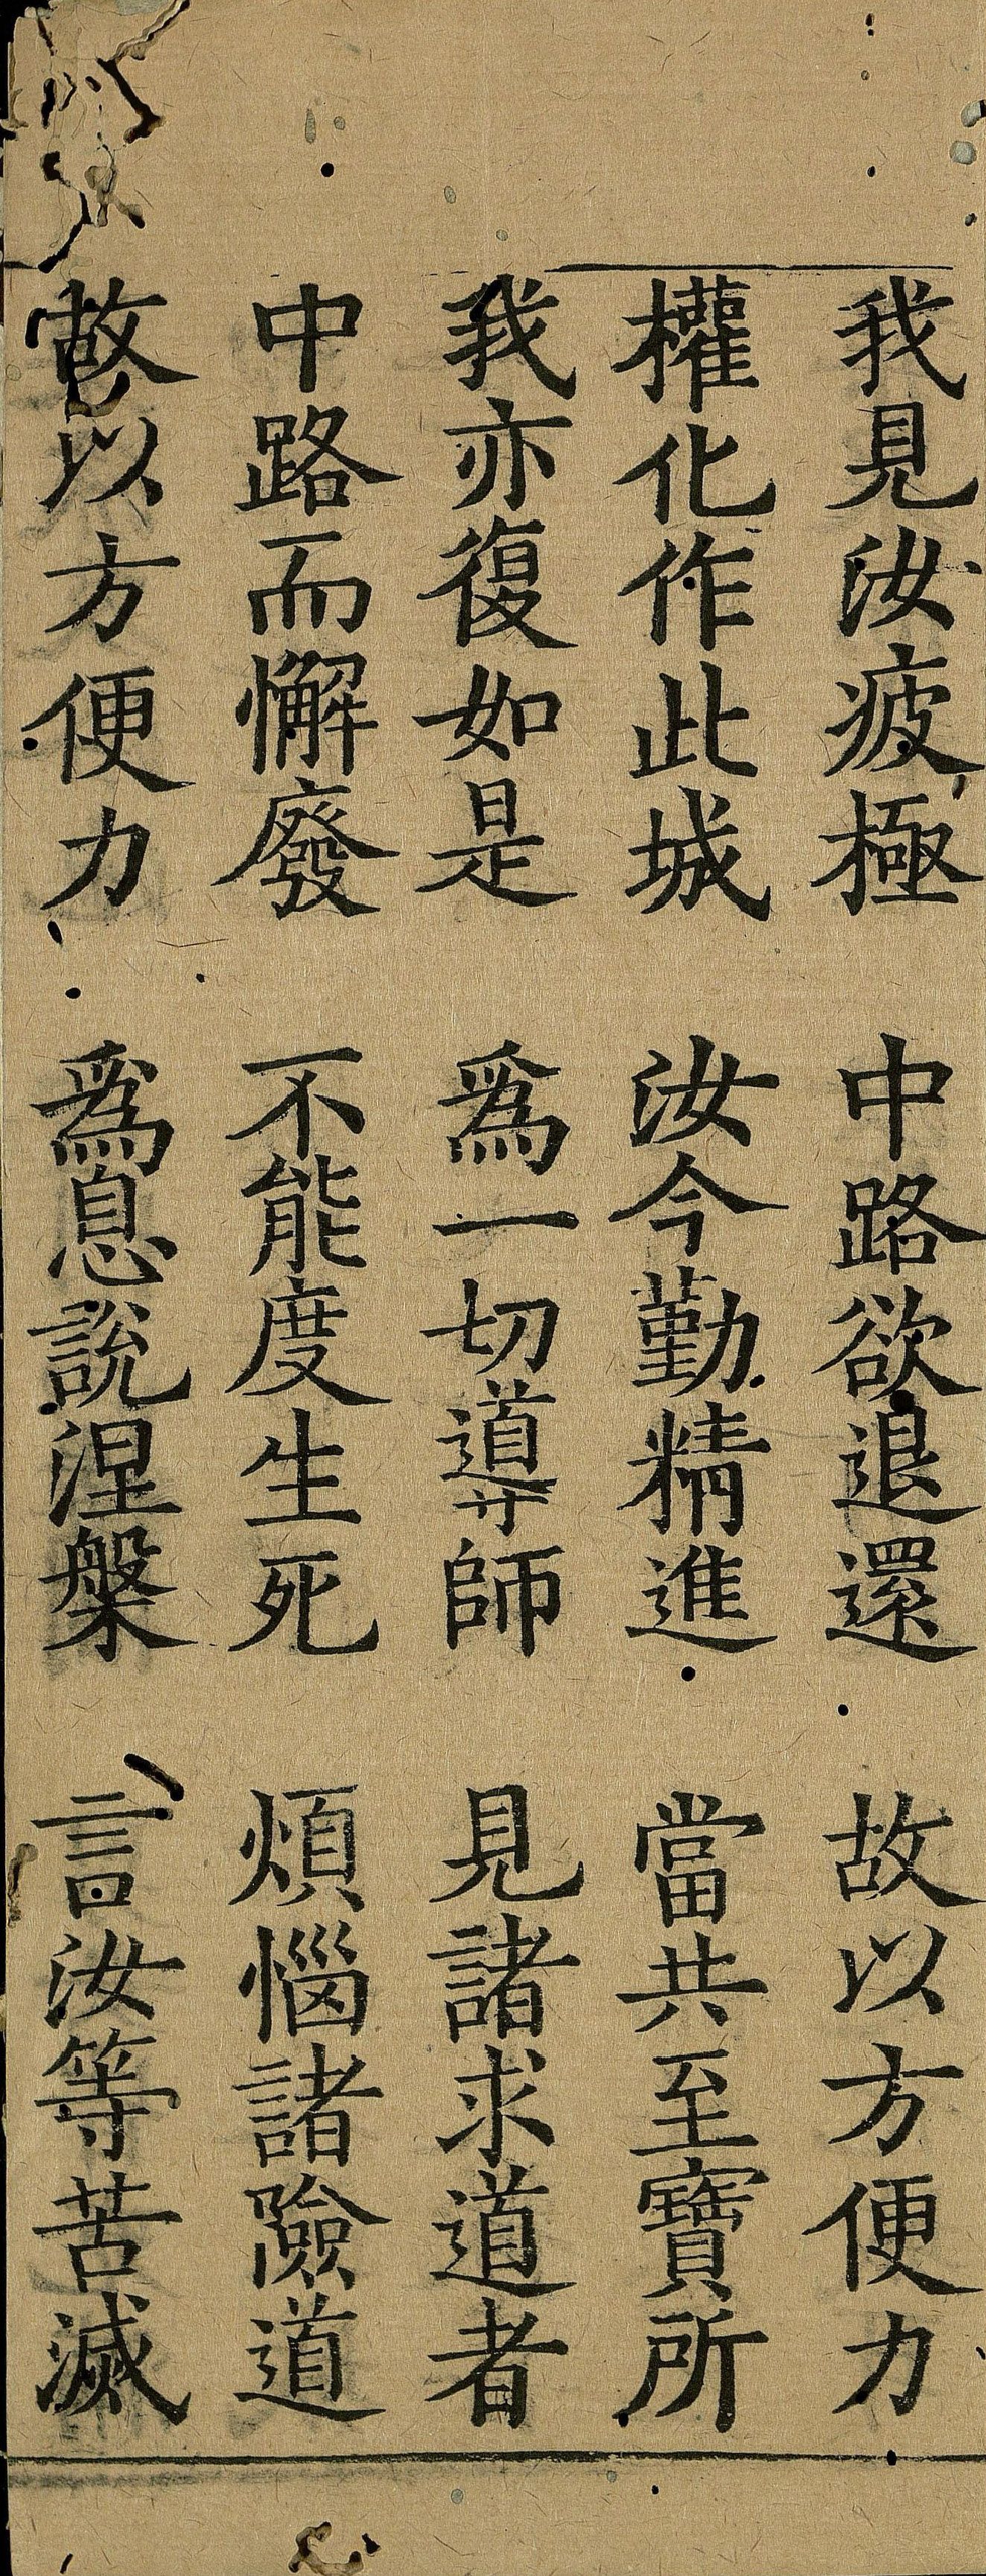 我見汝疲極　中路欲退還　故以方便力
權化作此城　汝今勤精進　當共至寶所
我亦復如是　爲一切導師　見諸求道者
中路而懈廢　不能度生死　煩惱諸險道
故以方便力　爲息說涅槃　言汝等苦滅